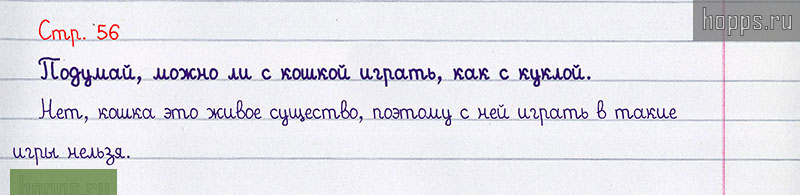 hopps.ru
Стр. 56
Подумай, можно ли с кошкой играть, как с куклой.
Нет, кошка это живое существо, поэтому с ней играть в такие
игры нельзя.
hopps.ru